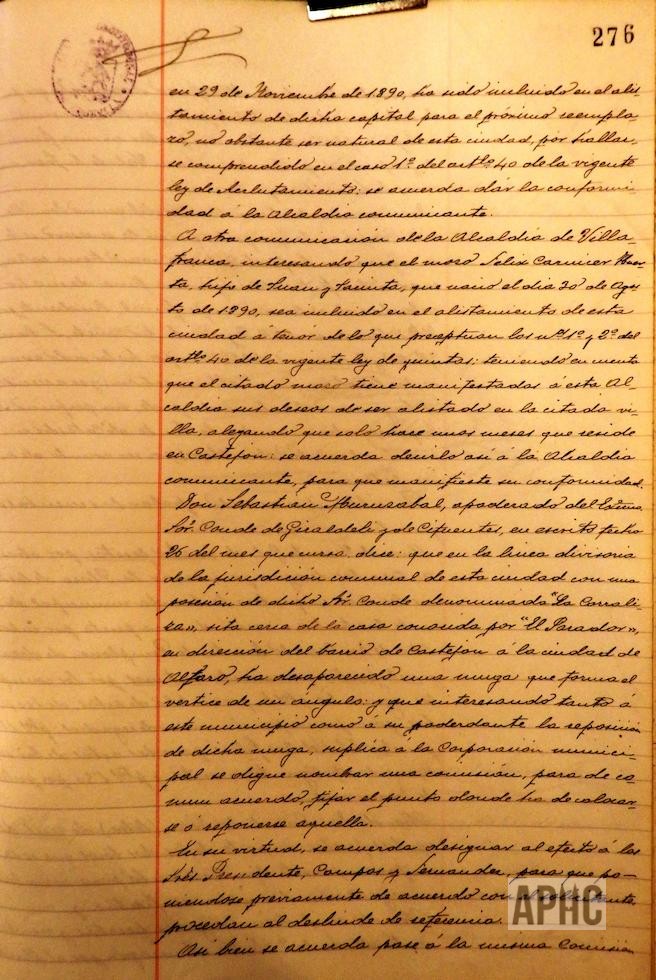 276
en 29 de Noviembre de 1890, ha sido incluido en el alis-
tamiento de dicha capital para el próximo reempla-
zo, no obstante ser natural de esta ciudad, por hallar-
se comprendido en el caso 1º del artlº 40 de la vigente
ley de Reclutamiento: se acuerda dar la conformi-
dad á la Alcaldia comunicante.
A otra comunicación de la Alcaldia de Villa-
franca, interesando que el mozo Felix Carnicer
ta, hijo de Juan y Jacinta, que nació el dia 30 de Agos-
to de 1890, sea incluido en el alistamiento de esta
ciudad á tenor de lo que preceptuan los nºs 1º y 2º del
artlº 40 de la vigente ley de quintas: teniendo en cuenta
que el citado mozo tiene manifestadas á esta Al-
caldia sus deseos de ser alistado en la citada vi-
lla, alegando que solo hace unos meses que reside
en Castejon: se acuerda decirlo asi á la Alcaldia
comunicante, para que manifieste su conformidad.
Don Sebastián Muruzabal, apoderado del Exmo.
Sor. Conde de Giraldeli y de Cifuentes, en escrito fecho
26 del mes que cursa, dice: que en la linea divisoria
de la jurisdicción comunal de esta ciudad con una
posesión de dicho Sor. Conde denominada "La Corrali-
za", sita cerca de la casa conocida por "El Parador",
en dirección del barrio de Castejon á la ciudad de
Alfaro, ha desaparecido una muga que forma el
vertice de un ángulo: y que interesando tanto á
este municipio como á su poderdante la reposición
de dicha muga, suplica á la Corporación munici-
pal se digne nombrar una comisión, para de co-
mun acuerdo, fijar el punto donde ha de colocar-
se ó reponerse aquella.
En su virtud, se acuerda designar al efecto á los
Sres Presidente, Campos y Fernandez, para que po-
niendose previamente de acuerdo con el solicitante,
procedan al deslinde de referencia.
Asi bien se acuerda pase á la misma Comisión
APHC